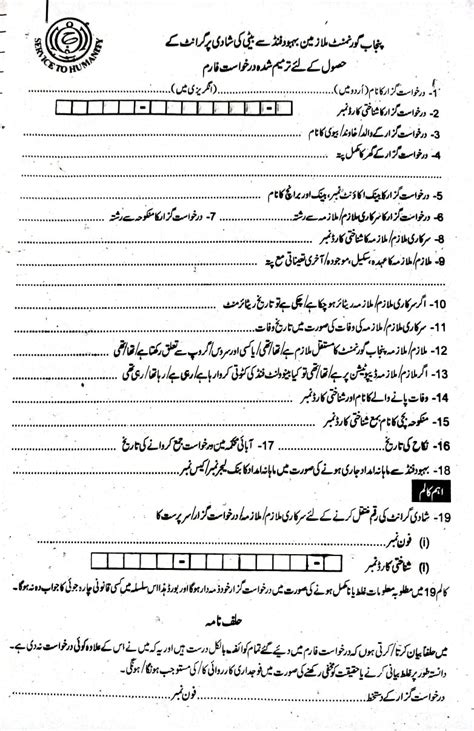 SERVICE TO HUMANITY
پنجاب گورنمنٹ ملازمین بہبود فنڈ سے بیٹی کی شادی پر گرانٹ کے
حصول کے لئے ترمیم شدہ درخواست فارم
1- درخواست گزار کا نام (اُردو میں) (انگریزی میں)
2- درخواست گزار کا شناختی کارڈ نمبر
3- درخواست گزار کے والد/خاوند/بیوی کا نام
4- درخواست گزار کے گھر کا مکمل پتہ
5- درخواست گزار کا بینک اکاؤنٹ نمبر، بینک اور برانچ کا نام
6- درخواست گزار کا سرکاری ملازم/ملازمہ سے رشتہ 7- درخواست گزار کا منکوحہ سے رشتہ
8- سرکاری ملازم/ملازمہ کا شناختی کارڈ نمبر
9- ملازم/ملازمہ کا عہدہ، سکیل، موجودہ/آخری تعیناتی مع پتہ
10- اگر سرکاری ملازم/ملازمہ ریٹائر ہو چکا ہے/چکی ہے تو تاریخ ریٹائرمنٹ
11- سرکاری ملازم/ملازمہ کی وفات کی صورت میں تاریخ وفات
12- ملازم/ملازمہ پنجاب گورنمنٹ کا مستقل ملازم ہے/تھا/تھی/یا کسی اور سروس/گروپ سے تعلق رکھتا ہے/تھا/تھی
13- اگر ملازم/ملازمہ ڈیپوٹیشن پر ہے/تھا/تھی تو کیا بینوولنٹ فنڈ کی کٹوتی کروا رہا ہے/رہی ہے/رہا تھا/رہی تھی
14- وفات پانے والے کا نام اور شناختی کارڈ نمبر
15- منکوحہ بچی کا نام بمع شناختی کارڈ نمبر
16- نکاح کی تاریخ 17- آبائی محکمہ میں درخواست جمع کروانے کی تاریخ
18- بہبود فنڈ سے ماہانہ امداد جاری ہونے کی صورت میں ماہانہ امداد کا بنک لیجر نمبر/کیس نمبر
اہم کالم
19- شادی گرانٹ کی رقم منتقل کرنے کے لئے سرکاری ملازم/ملازمہ/درخواست گزار/سرپرست کا
(i) فون نمبر
(i) شناختی کارڈ نمبر
کالم 19 میں مطلوبہ معلومات غلط یا نامکمل ہونے کی صورت میں درخواست گزار خود ذمہ دار ہوگا اور بورڈ ہذا اس سلسلہ میں کسی قانونی چارہ جوئی کا پابند نہ ہوگا۔
حلف نامہ
میں حلفاً بیان کرتا/کرتی ہوں کہ درخواست فارم میں دیئے گئے تمام کوائف بالکل درست ہیں اور یہ کہ میں نے اس کے علاوہ کوئی درخواست نہ دی ہے۔
دانستہ طور پر غلط بیانی کرنے یا حقیقت کو مخفی رکھنے کی صورت میں فوجداری کارروائی کا/کی مستوجب ہونگا/ہونگی۔
درخواست گزار کے دستخط فون نمبر